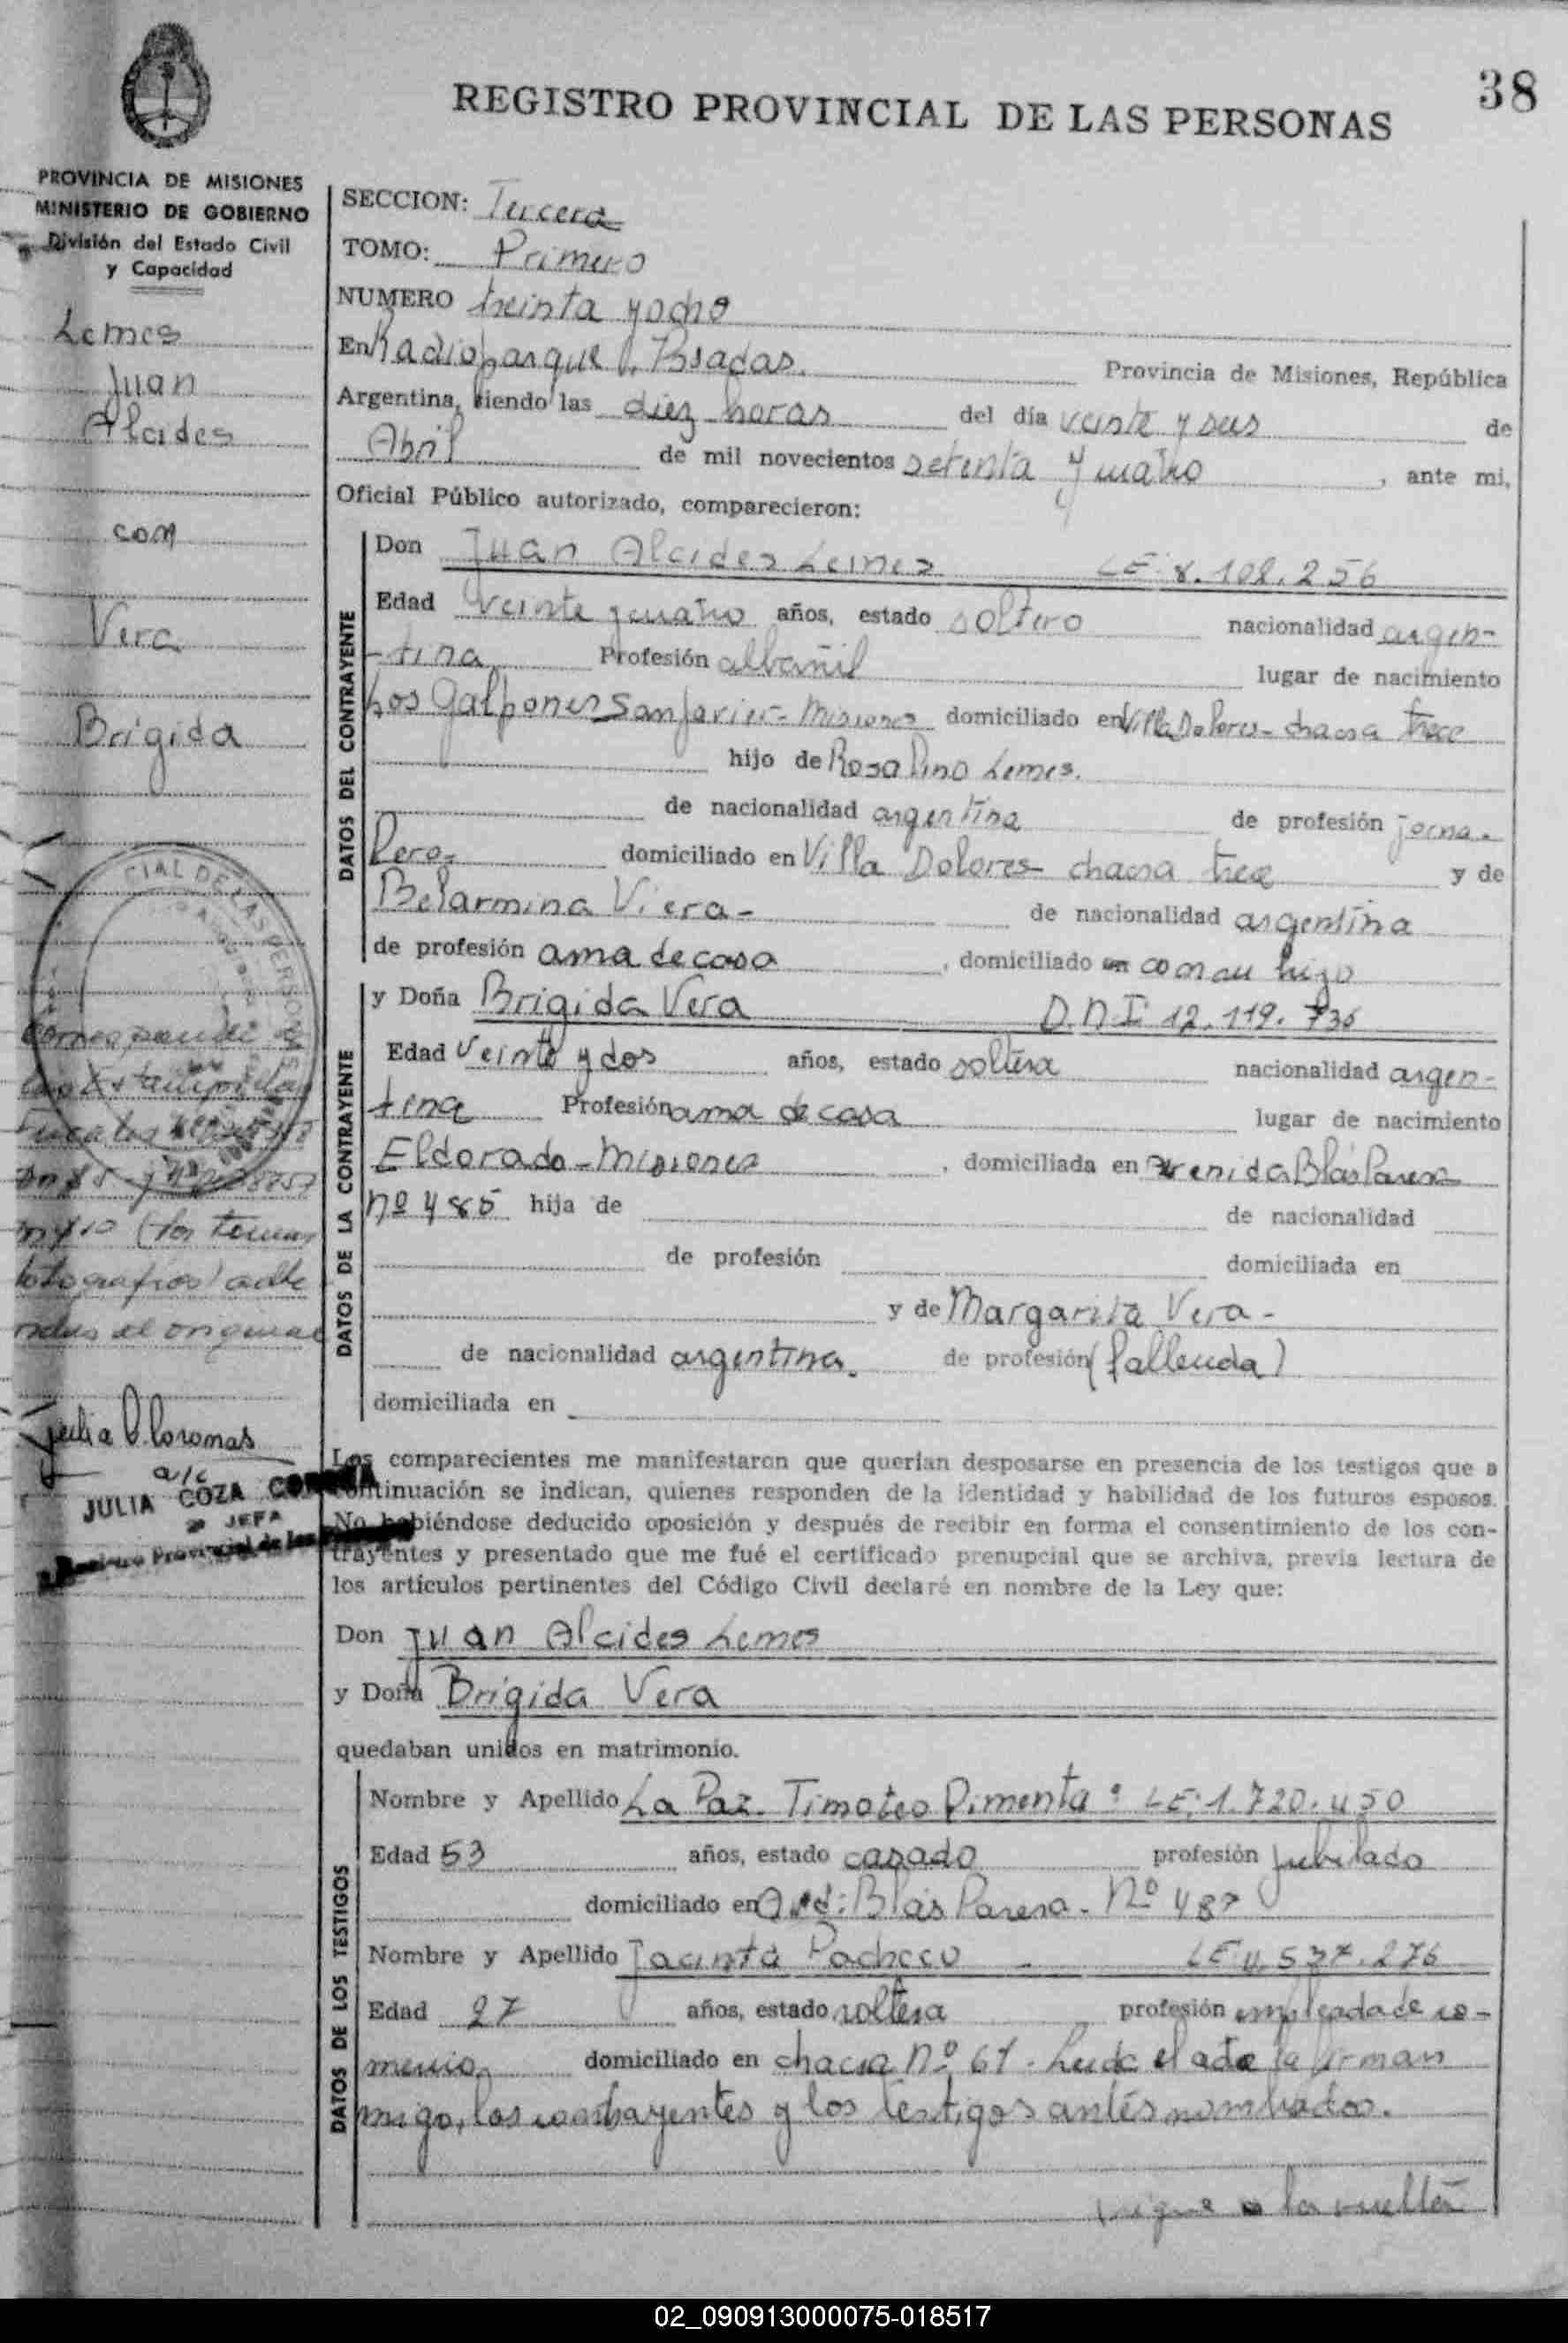 38
REGISTRO PROVINCIAL DE LAS PERSONAS
PROVINCIA DE MISIONES
MINISTERIO DE GOBIERNO
División del Estado Civil
y Capacidad
Lemes
Juan
Alcides
con
Vera
Brigida
CIAL DE LAS PERSONAS
Corresponde a
las Estampillas
Fiscales
(los termos
originae
Julia
a/c
JULIA COZA
JEFA
Provincial de las
SECCION: Tercera
TOMO: Primero
NUMERO treinta y ocho
En Radioparque I. Posadas. Provincia de Misiones, República
Argentina, siendo las diez horas del día veinte y seis de
Abril de mil novecientos setenta y cuatro, ante mi,
Oficial Público autorizado, comparecieron:
DATOS DEL CONTRAYENTE
Don Juan Alcides Lemes LE: 8.108.256
Edad veinte y cuatro años, estado soltero nacionalidad argen-
-tina Profesión albañil lugar de nacimiento
Los Galpones San Javier - Misiones domiciliado en Villa Dolores - chacra trece
hijo de Rosalino Lemes.
de nacionalidad argentina de profesión jorna-
lero- domiciliado en Villa Dolores - chacra trece y de
Belarmina Viera - de nacionalidad argentina
de profesión ama de casa, domiciliado en con su hijo
DATOS DE LA CONTRAYENTE
y Doña Brigida Vera D.N.I 12.119.736
Edad Veinte y dos años, estado soltera nacionalidad argen-
tina Profesión ama de casa lugar de nacimiento
Eldorado - Misiones, domiciliada en Avenida Blás Parera
nº 485 hija de de nacionalidad
de profesión domiciliada en
y de Margarita Vera -
de nacionalidad argentina. de profesión (fallecida)
domiciliada en
Los comparecientes me manifestaron que querían desposarse en presencia de los testigos que a
continuación se indican, quienes responden de la identidad y habilidad de los futuros esposos.
No habiéndose deducido oposición y después de recibir en forma el consentimiento de los con-
trayentes y presentado que me fué el certificado prenupcial que se archiva, previa lectura de
los artículos pertinentes del Código Civil declaré en nombre de la Ley que:
Don Juan Alcides Lemes
y Doña Brigida Vera
quedaban unidos en matrimonio.
DATOS DE LOS TESTIGOS
Nombre y Apellido La Paz Timoteo Pimenta: LE: 1.720.450
Edad 53 años, estado casado profesión jubilado
domiciliado en Avd: Blás Parera - Nº 487
Nombre y Apellido Jacinta Pacheco LE 4.537.276
Edad 27 años, estado soltera profesión empleada de co-
mercio, domiciliado en chacra Nº 61. Leida el acta la firman
migo, los contrayentes y los testigos antes nombrados.
sigue a la vuelta
02_090913000075-018517